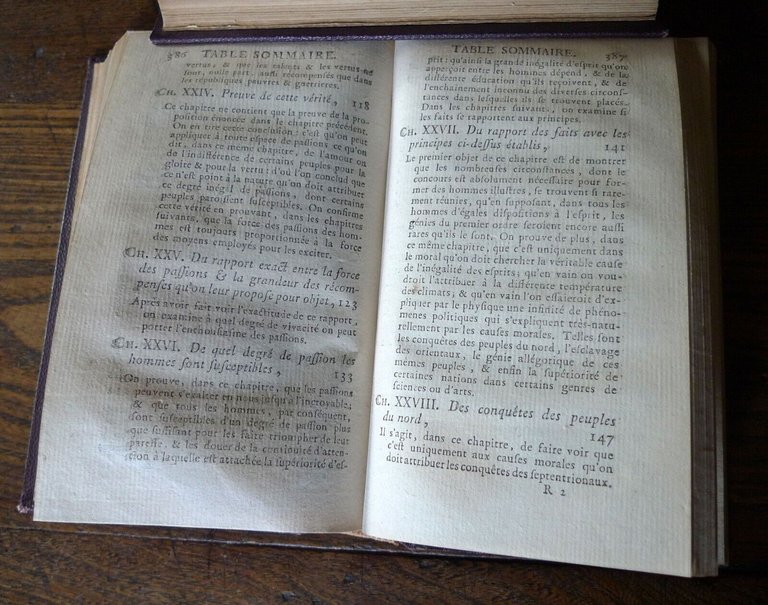 386 TABLE SOMMAIRE.
vertus, & que les talents & les vertus ne
sont, nulle part, aussi récompensés que dans
les républiques pauvres & guerrieres.
CH. XXIV. Preuve de cette vérité, 118
Ce chapitre ne contient que la preuve de la pro-
position énoncée dans le chapitre précédent.
On en tire cette conclusion; c'est qu'on peut
appliquer à toute espece de passions ce qu'on
dit, dans ce même chapitre, de l'amour ou
de l'indifférence de certains peuples pour la
gloire & pour la vertu: d'où l'on conclud que
ce n'est point à la nature qu'on doit attribuer
ce degré inégal de passions, dont certains
peuples paroissent susceptibles. On confirme
cette vérité en prouvant, dans les chapitres
suivants, que la force des passions des hom-
mes est toujours proportionnée à la force
des moyens employés pour les exciter.
CH. XXV. Du rapport exact entre la force
des passions & la grandeur des récom-
penses qu'on leur propose pour objet, 123
Après avoir fait voir l'exactitude de ce rapport,
on examine à quel degré de vivacité on peut
porter l'enthousiasme des passions.
CH. XXVI. De quel degré de passion les
hommes sont susceptibles, 133
On prouve, dans ce chapitre, que les passions
peuvent s'exalter en nous jusqu'à l'incroyable;
& que tous les hommes, par conséquent,
sont susceptibles d'un degré de passion plus
que suffisant pour les faire triompher de leur
paresse, & les douer de la continuité d'atten-
tion à laquelle est attachée la supériorité d'es-
TABLE SOMMAIRE. 387
prit: qu'ainsi la grande inégalité d'esprit qu'on
apperçoit entre les hommes dépend, & de la
différente éducation qu'ils reçoivent, & de
l'enchaînement inconnu des diverses circons-
tances dans lesquelles ils se trouvent placés.
Dans les chapitres suivants, on examine si
les faits se rapportent aux principes.
CH. XXVII. Du rapport des faits avec les
principes ci-dessus établis, 141
Le premier objet de ce chapitre est de montrer
que les nombreuses circonstances, dont le
concours est absolument nécessaire pour for-
mer des hommes illustres, se trouvent si rare-
ment réunies, qu'en supposant, dans tous les
hommes d'égales dispositions à l'esprit, les
génies du premier ordre seroient encore aussi
rares qu'ils le sont. On prouve de plus, dans
ce même chapitre, que c'est uniquement dans
le moral qu'on doit chercher la véritable cause
de l'inégalité des esprits; qu'en vain on vou-
droit l'attribuer à la différente température
des climats; & qu'en vain l'on essaieroit d'ex-
pliquer par le physique une infinité de phéno-
menes politiques qui s'expliquent très-natu-
rellement par les causes morales. Telles sont
les conquêtes des peuples du nord, l'esclavage
des orientaux, le génie allégorique de ces
mêmes peuples, & enfin la supériorité de
certaines nations dans certains genres de
sciences ou d'arts.
CH. XXVIII. Des conquêtes des peuples
du nord, 147
Il s'agit, dans ce chapitre, de faire voir que
c'est uniquement aux causes morales qu'on
doit attribuer les conquêtes des septentrionaux.
R 2